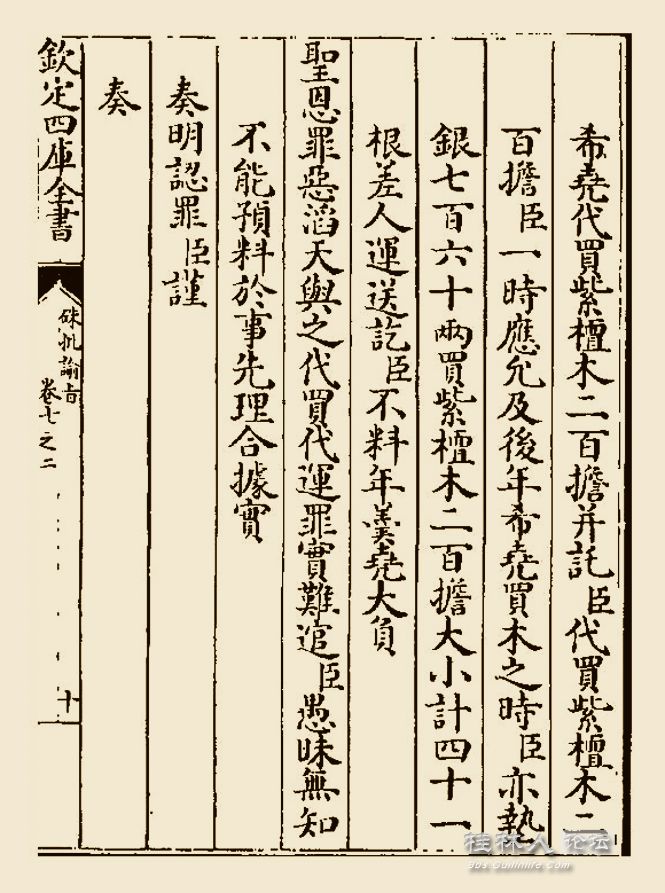 希堯代買紫檀木二百擔并託臣代買紫檀木二
百擔臣一時應允及後年希堯買木之時臣亦執
銀七百六十兩買紫檀木二百擔大小計四十一
根差人運送訖臣不料年羹堯大負
聖恩罪惡滔天與之代買代運罪實難逭臣愚昧無知
不能預料於事先理合據實
奏明認罪臣謹
奏
欽定四庫全書
硃批諭旨
卷七之二
十
桂林人论坛
bbs.guilinlife.com